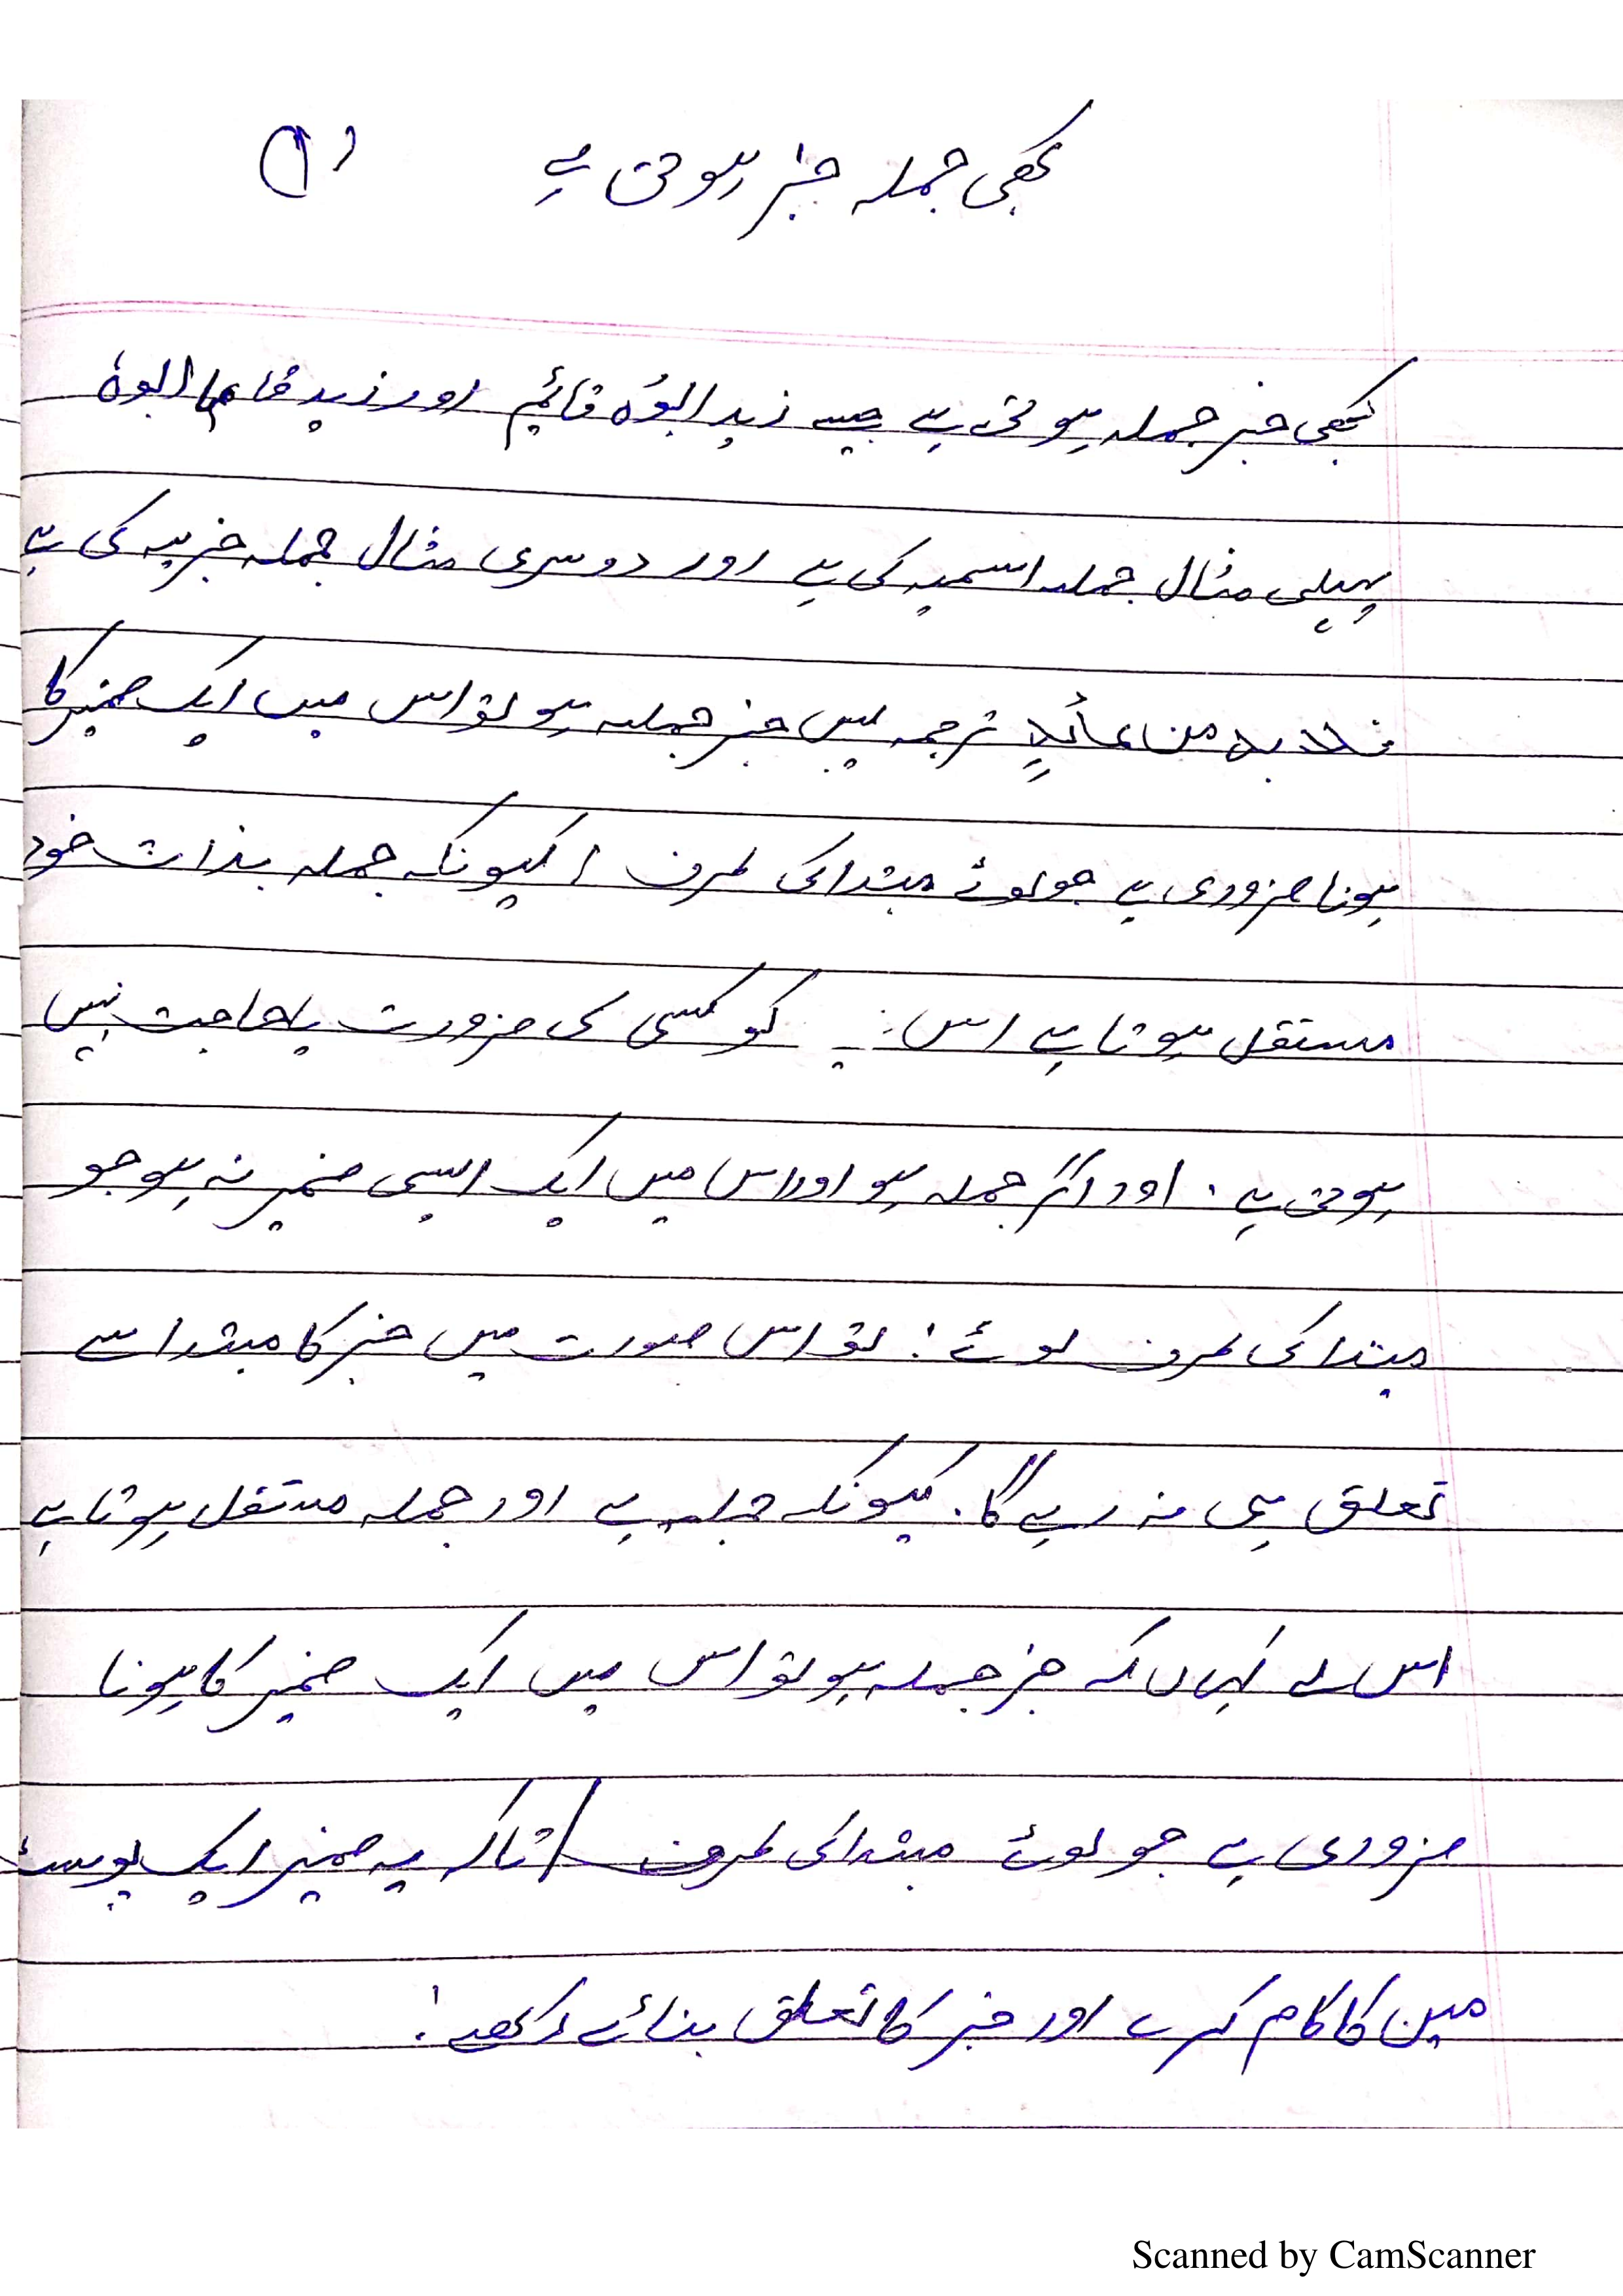 کبھی جملہ خبر ہوتی ہے
کبھی خبر جملہ ہوتی ہے جیسے زید ابوُہ قائم اور زید قام ابوہٗ
پہلی مثال جملہ اسمیہ کی ہے اور دوسری مثال جملہ خبریہ کی ہے
فلا بد من عائدٍ ترجمہ پس خبر جملہ ہو تو اس میں ایک ضمیر کا
ہونا ضروری ہے جو لوٹے مبتدا کی طرف ! کیونکہ جملہ بذات خود
مستقل ہوتا ہے اس :- کو کسی کی ضرورت یا حاجت نہیں
ہوتی ہے . اور اگر جملہ ہو اور اس میں ایک ایسی ضمیر نہ ہو جو
مبتدا کی طرف لوٹے ! تو اس صورت میں خبر کا مبتدا سے
تعلق ہی نہ رہے گا . کیونکہ جملہ ہے اور جملہ مستقل ہوتا ہے
اس لے کہاں کہ خبر جملہ ہو تو اس میں ایک ضمیر کا ہونا
ضروری ہے جو لوٹے مبتدا کی طرف / تاکہ یہ ضمیر ایک پوسٹ
مین کا کام کرے اور خبر کا تعلق بنائے رکھے !
Scanned by CamScanner